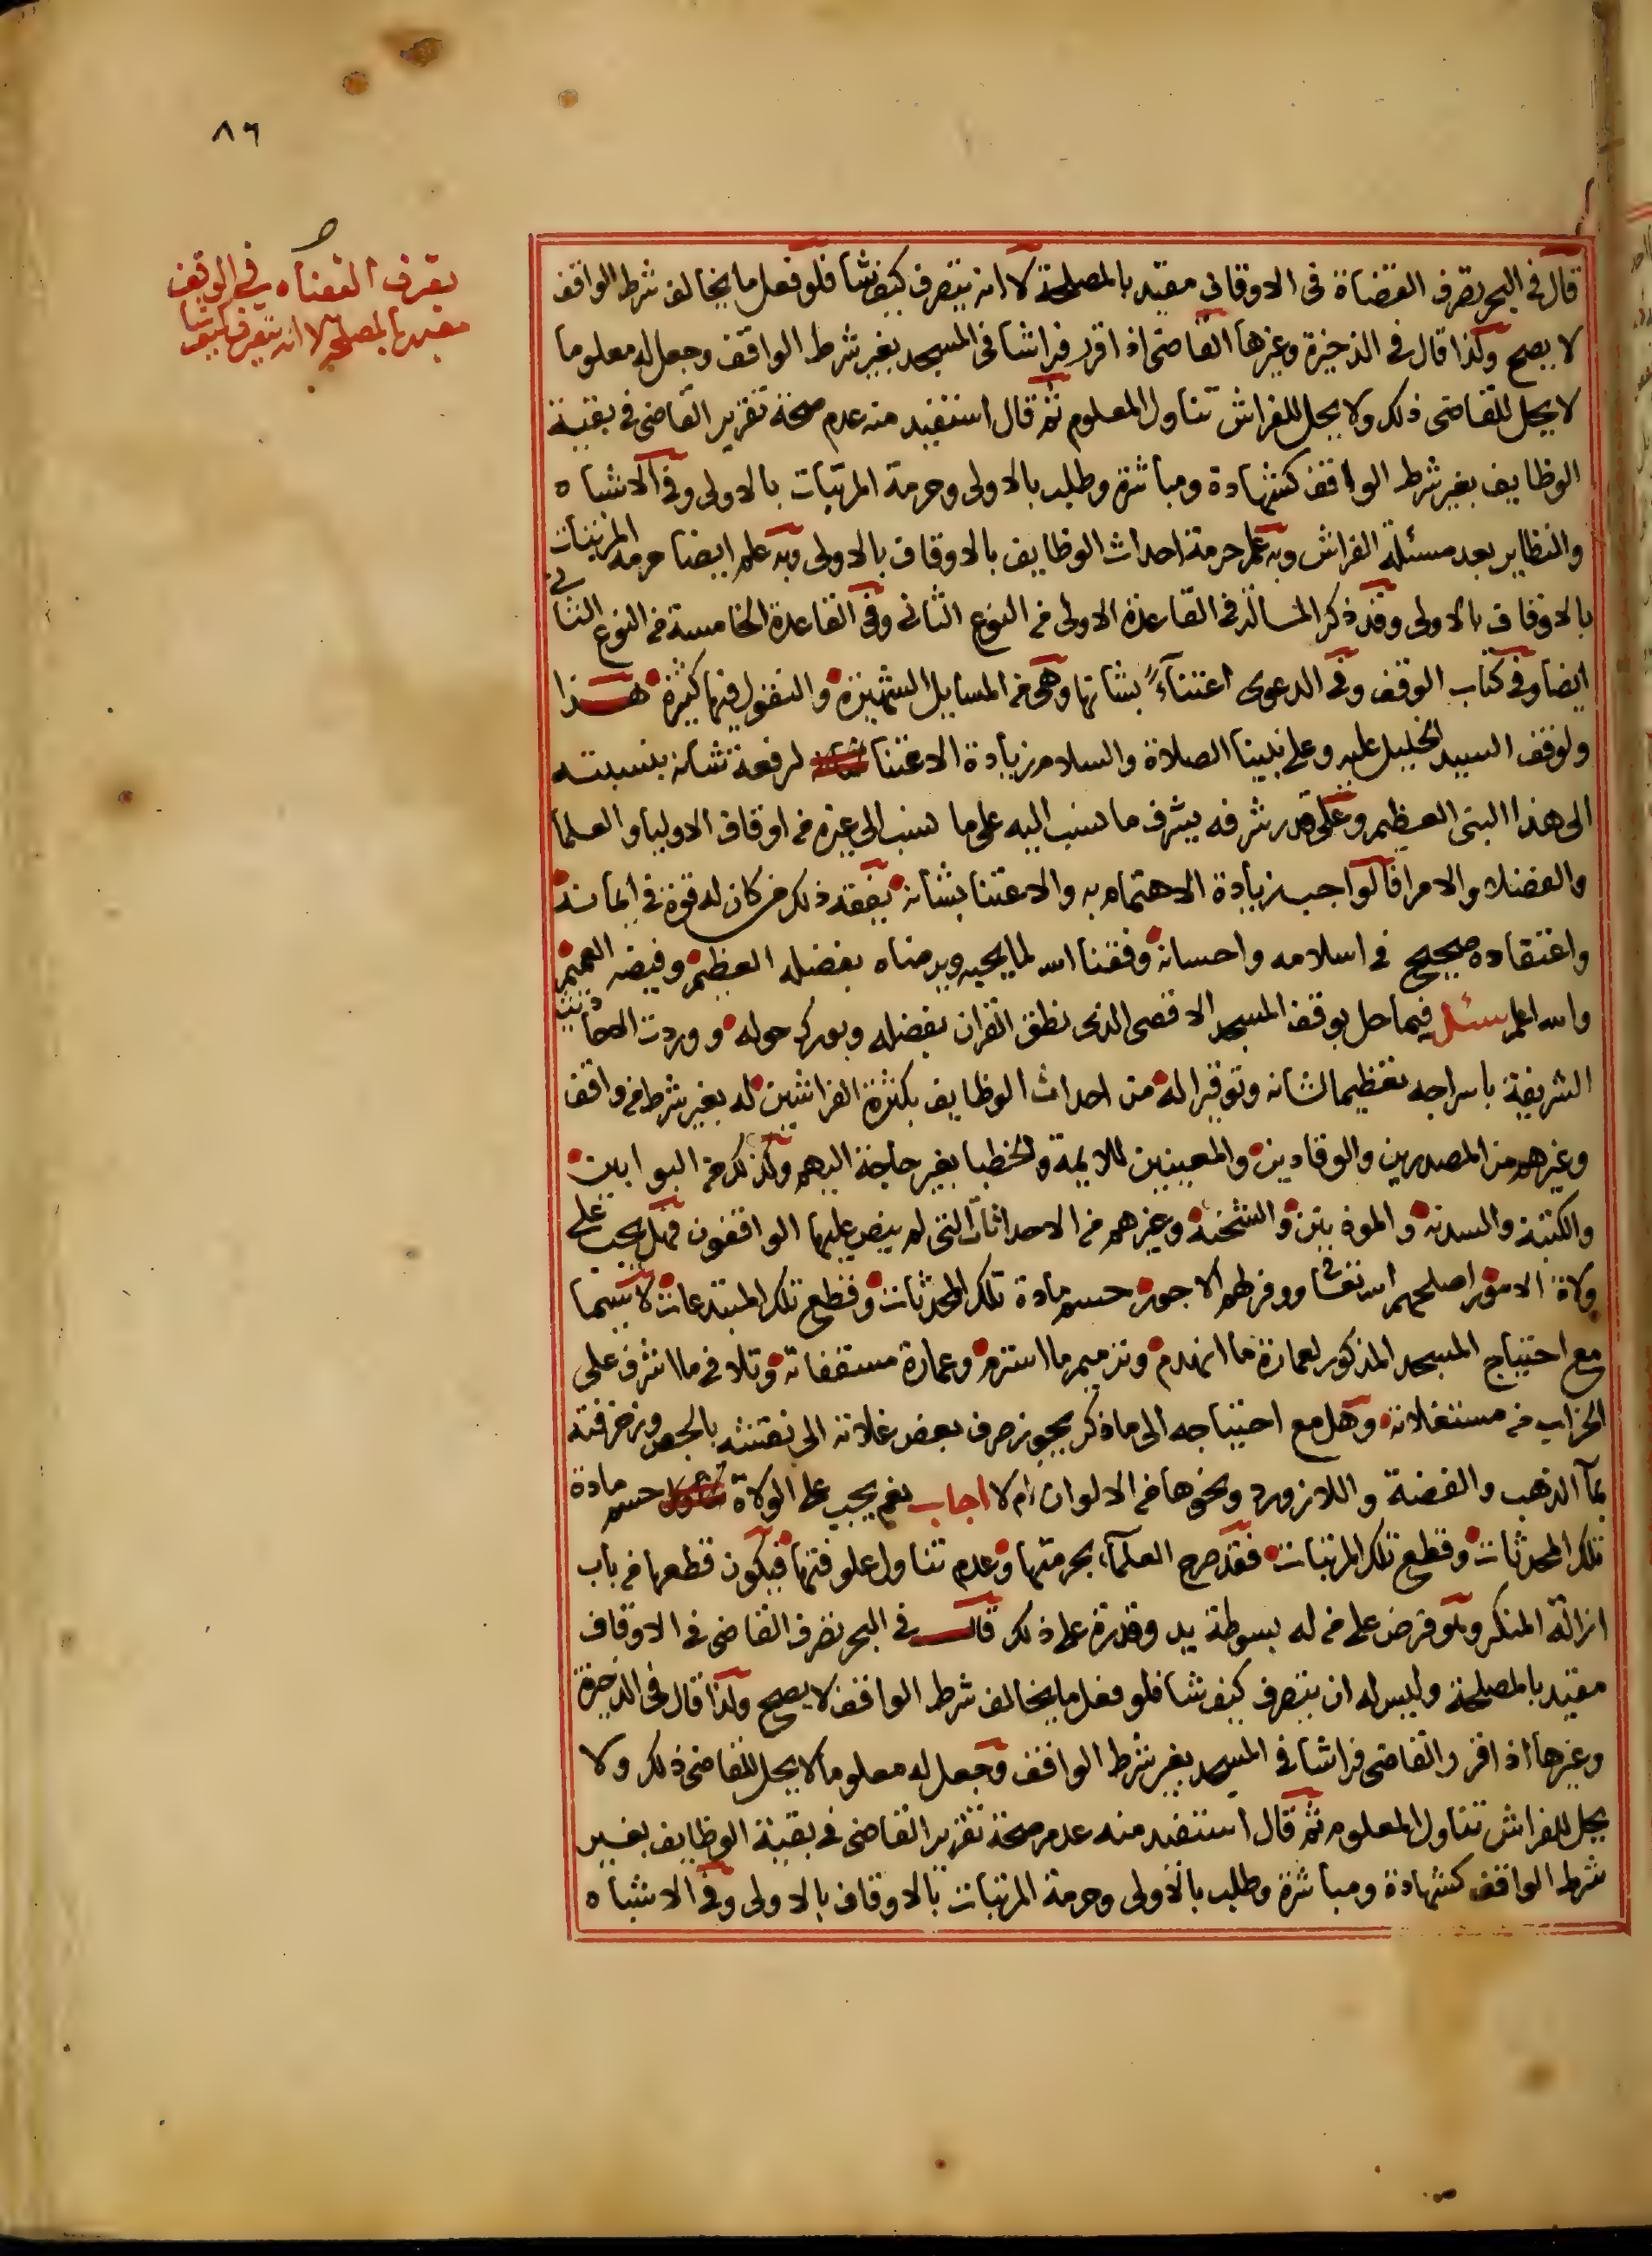 ٨٦
تصرف القضاه في الوقف
مقيد بالمصلحة لا انه يتصرف كيف شا
قال في البحر تصرف القضاة في الاوقاف مقيد بالمصلحة لا انه يتصرف كيف شا فلو فعل ما يخالف شرط الواقف
لا يصح وكذا قال في الذخيرة وغيرها القاضي اذا قرر فراشا في المسجد بغير شرط الواقف وجعل له معلوما
لا يحل للقاضي ذلك ولا يحل للفراش تناول المعلوم ثم قال استفيد منه عدم صحة تقرير القاضي في بقية
الوظايف بغير شرط الواقف كشهادة ومباشرة وطلب بالاولى وحرمة المرتبات بالاولى وفي الاشباه
والنظاير بعد مسئلة الفراش وبه علم حرمة احداث الوظايف بالاوقاف بالاولى وبه علم ايضا حرمة المرتبات
بالاوقاف بالاولى وقد ذكر المسالة في القاعدة الاولى من النوع الثاني وفي القاعدة الخامسة من النوع الثاني
ايضا وفي كتاب الوقف وفي الدعوى اعتناءً بشانها وهي من المسايل الشهيرة والنقول فيها كثيرة هذا
ولوقف السيد الخليل عليه وعلى نبينا الصلاة والسلام زيادة الاعتنا لرفعة شانه بنسبته
الى هذا النبي العظيم وعلى قدر شرفه يشرف ما نسب اليه على ما نسب الى غيره من اوقاف الاوليا والعلما
والفضلا والامرا فالواجب زيادة الاهتمام به والاعتنا بشانه يفقه ذلك من كان له قوة في ايمانه
واعتقاده صحيح في اسلامه واحسانه وفقنا الله لما يحبه ويرضاه بفضله العظيم وفيضه العميم
والله اعلم سئل فيما حل بوقف المسجد الاقصى الذي نطق القران بفضله وبورك حوله ووردت الاحاديث
الشريفة باسراجه تعظيما لشانه وتوقيرا له من احداث الوظايف بكثرة الفراشين له بغير شرط من واقف
وغيرهم من المصدرين والوقادين والمعينين للايمة والخطبا بغير حاجة اليهم وكذلك من البوابين
والكتبة والسدنه والموذنين والشحنة وغيرهم من الاحداثات التي لم ينص عليها الواقفون فهل يجب على
ولاة الامور اصلحهم الله تعالى ووفر لهم الاجور حسم مادة تلك المحدثات وقطع تلك المبتدعات لا سيما
مع احتياج المسجد المذكور لعمارة ما انهدم وترميم ما استرم وعمارة مسقفاته وتلافي ما اشرف على
الخراب من مستغلاته وهل مع احتياجه الى ما ذكر يجوز صرف بعض غلاته الى نقشه بالجص وزخرفته
بماء الذهب والفضة واللازورد ونحوها من الالوان ام لا اجاب نعم يجب على الولاة حسم مادة
تلك المحدثات وقطع تلك المرتبات فقد صرح العلماء بحرمتها وعدم تناول علوفتها فيكون قطعها من باب
ازالة المنكر وهو فرض على من له بسوطة يد وقدرة على ذلك قال في البحر تصرف القاضي في الاوقاف
مقيد بالمصلحة وليس له ان يتصرف كيف شا فلو فعل ما يخالف شرط الواقف لا يصح ولذا قال في الذخيرة
وغيرها اذا قرر القاضي فراشا في المسجد بغير شرط الواقف وجعل له معلوما لا يحل للقاضي ذلك ولا
يحل للفراش تناول المعلوم ثم قال استفيد منه عدم صحة تقرير القاضي في بقية الوظايف بغير
شرط الواقف كشهادة ومباشرة وطلب بالاولى وحرمة المرتبات بالاوقاف بالاولى وفي الاشباه